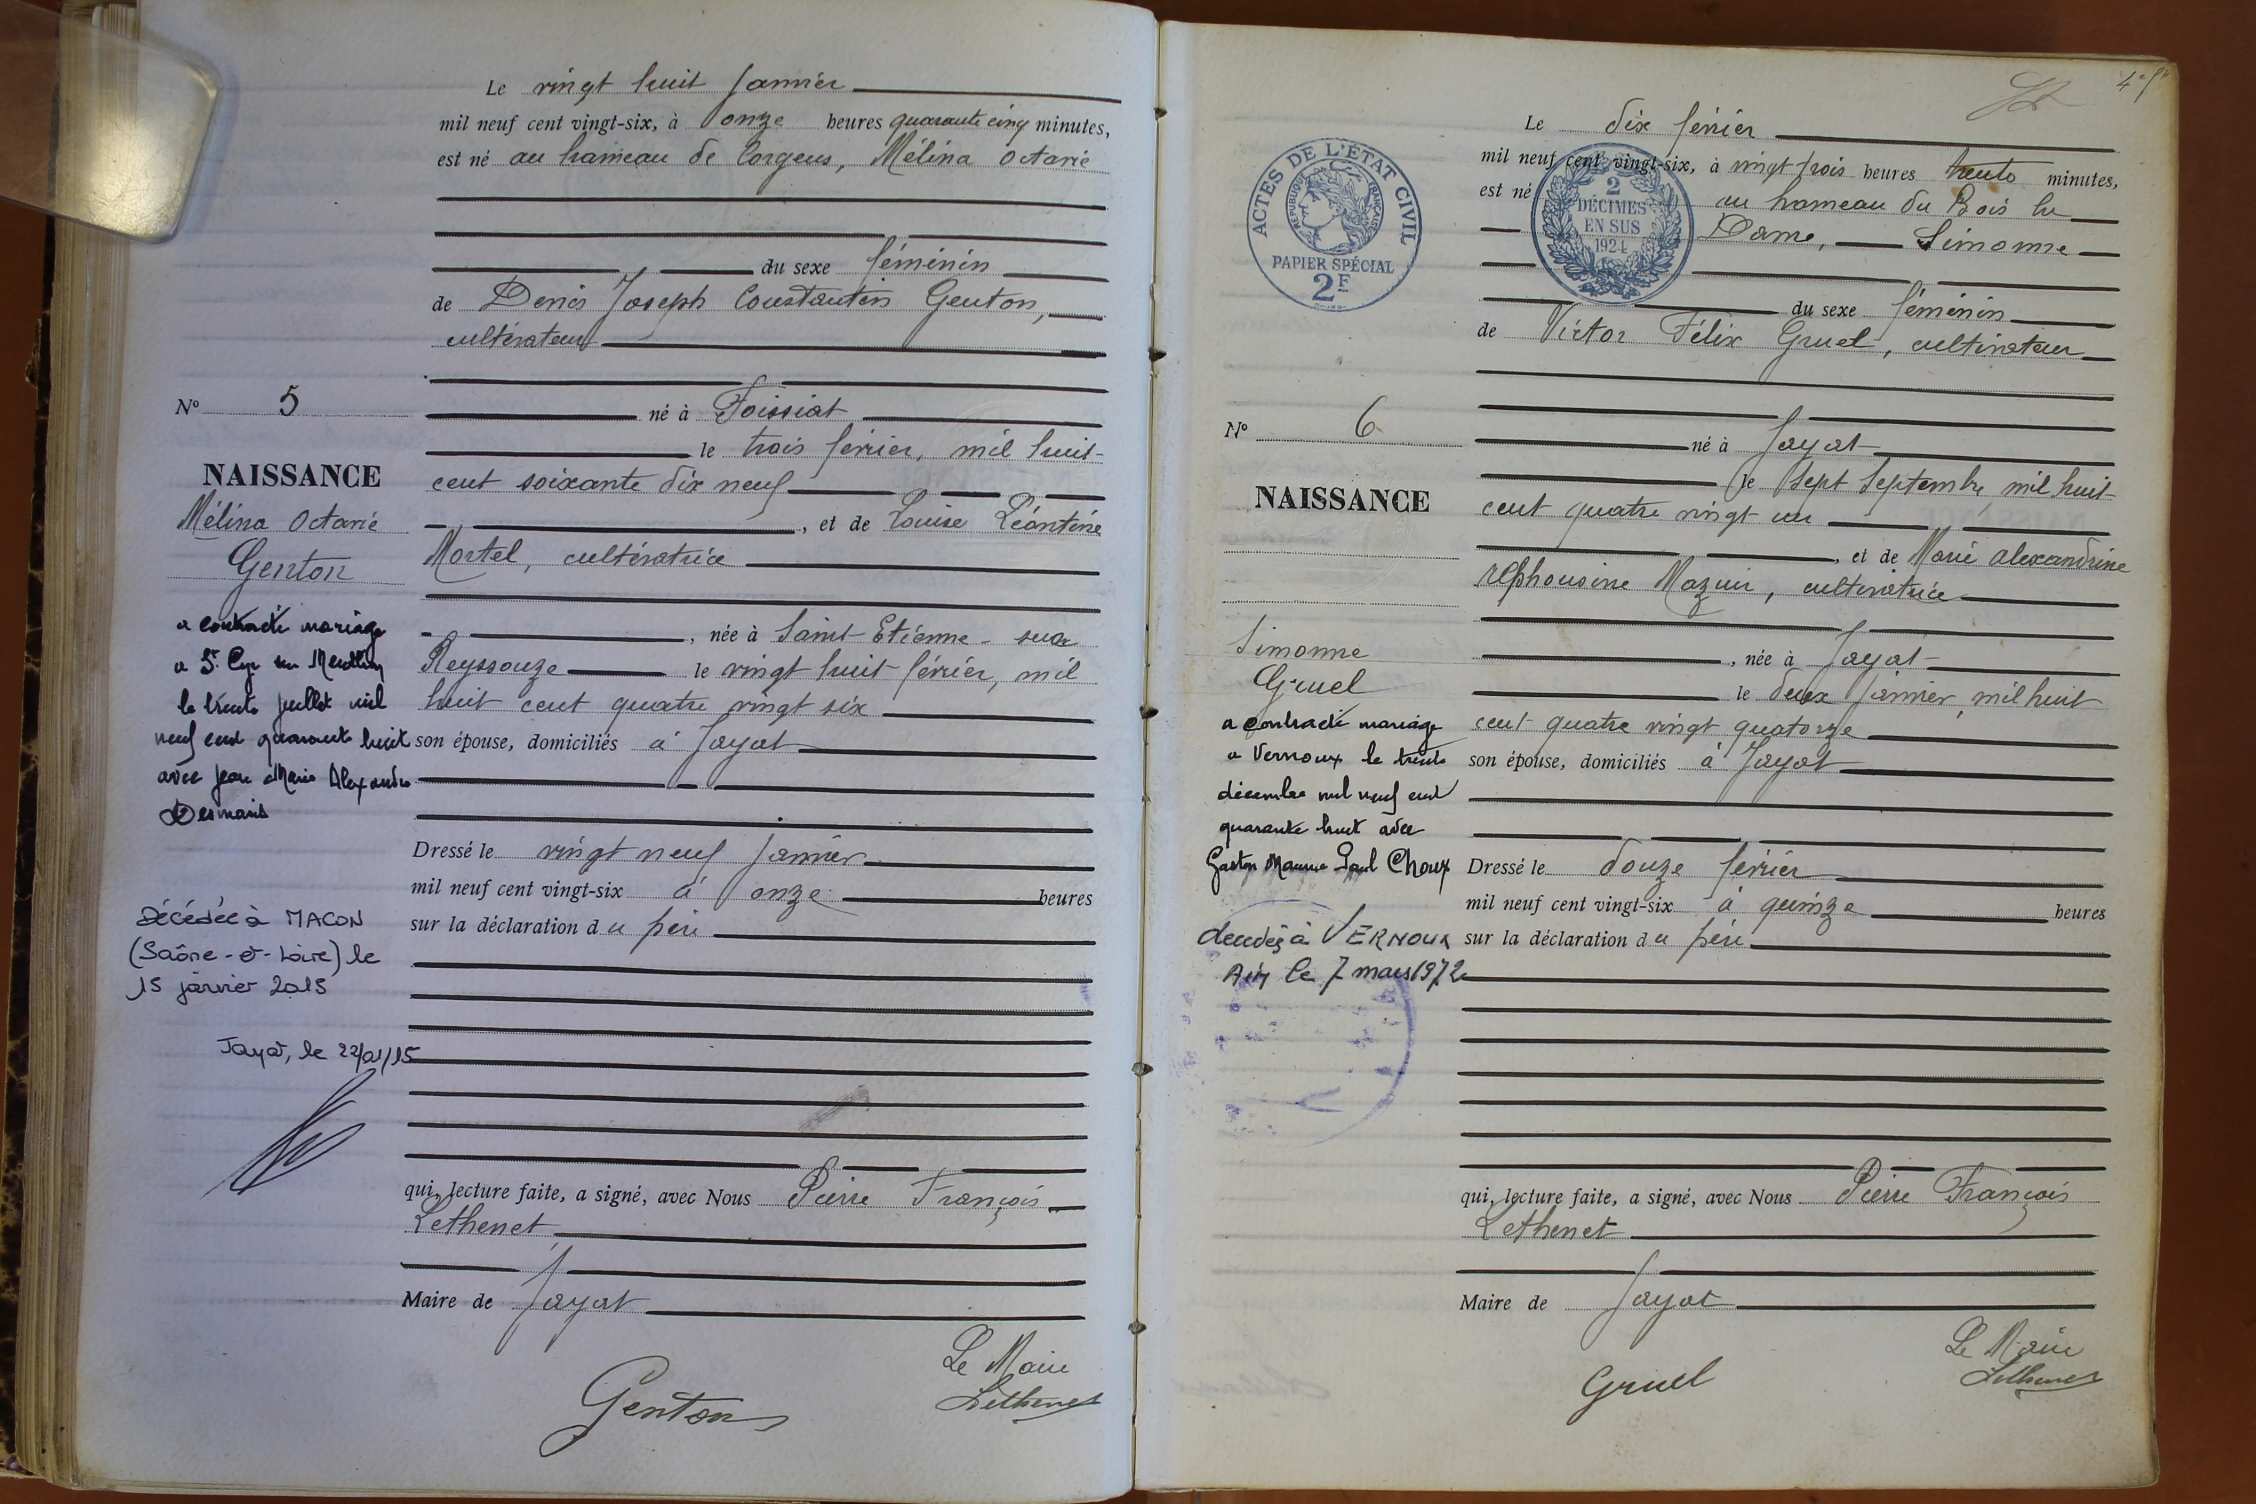 Le vingt huit Janvier
mil neuf cent vingt-six, à onze heures quarante cinq minutes,
est né au hameau de Corgeus, Mélina Octavie
du sexe féminin
de Denis Joseph Constantin Genton,
cultivateur
né à Foissiat
le trois février, mil huit-
cent soixante dix neuf
, et de Louise Léontine
Mortel, cultivatrice
, née à Saint-Etienne-sur
Reyssouze le vingt huit février, mil
huit cent quatre vingt six
son épouse, domiciliés à Jayat
Dressé le vingt neuf Janvier
mil neuf cent vingt-six à onze heures
sur la déclaration du père
qui, lecture faite, a signé, avec Nous Pierre François
Lethenet
Maire de Jayat
Le Maire
Genton
Lethenet
Nº 5
NAISSANCE
Mélina Octavie
Genton
a contracté mariage
a St. Cyr sur Menthon
le trente juillet mil
neuf cent quarante huit
avec Jean Marie Alexandre
Desmaris
Décédée à MACON
(Saône-et-Loire) le
15 janvier 2015
Jayat, le 22/01/15
4e
ACTES DE L'ÉTAT CIVIL
RÉPUBLIQUE FRANÇAISE
PAPIER SPÉCIAL
2F
2
DÉCIMES
EN SUS
1924
Le dix février
mil neuf cent vingt-six, à vingt trois heures trente minutes,
est né au hameau du Bois la
Dame, Simonne
du sexe féminin
de Victor Félix Gruel, cultivateur
né à Jayat
le sept Septembre mil huit-
cent quatre vingt un
, et de Marie Alexandrine
Alphonsine Mazuir, cultivatrice
, née à Jayat
le deux Janvier, mil huit
cent quatre vingt quatorze
son épouse, domiciliés à Jayat
Dressé le douze février
mil neuf cent vingt-six à quinze heures
sur la déclaration du père
qui, lecture faite, a signé, avec Nous Pierre François
Lethenet
Maire de Jayat
Le Maire
Gruel
Lethenet
Nº 6
NAISSANCE
Simonne
Gruel
a contracté mariage
a Vernoux le trente
décembre mil neuf cent
quarante huit avec
Gaston Maurice Paul Choux
décédée à VERNOUX
Ain le 7 mars 1972